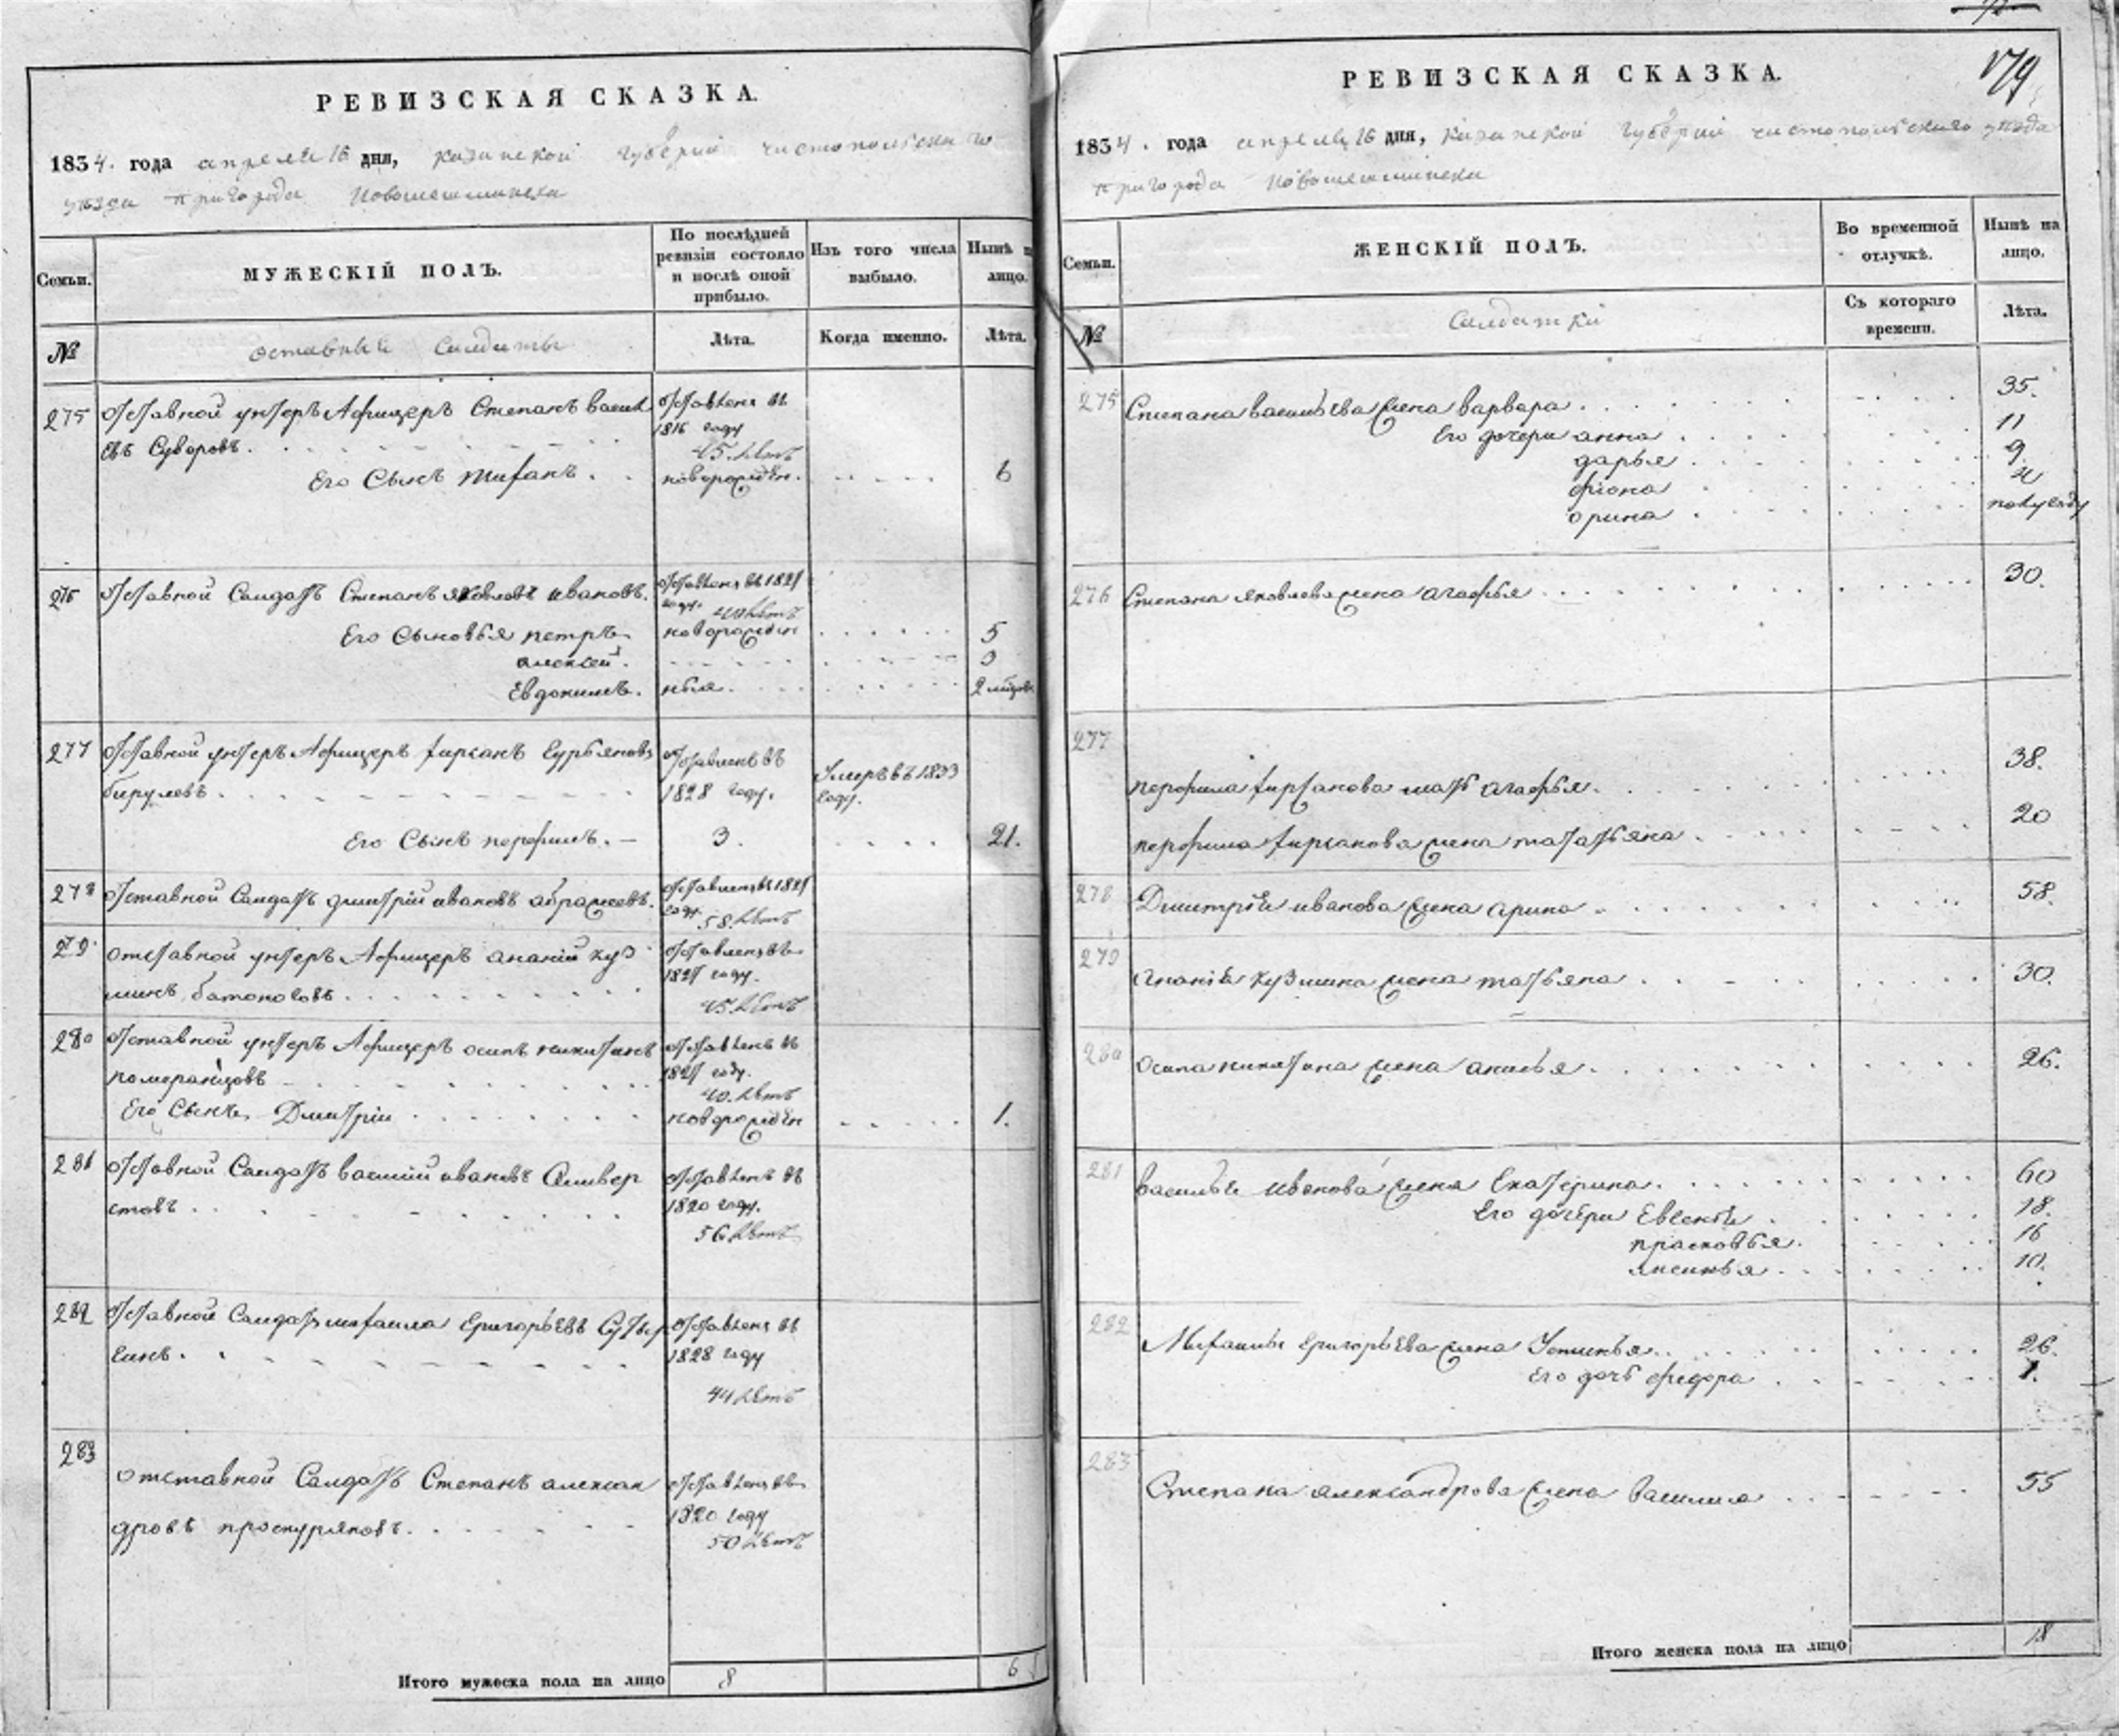 РЕВИЗСКАЯ СКАЗКА.
1834. года апреля 16 дня, казанской губернии чистопольского
уезда пригорода Новошешминска
Семьи.
МУЖЕСКІЙ ПОЛЪ.
По послѣдней ревизіи состояло и послѣ оной прибыло.
Изъ того числа выбыло.
Нынѣ на лицо.
№
оставныи Салдаты
Лѣта.
Когда именно.
Лѣта.
275 отставной унтеръ Афицеръ Степанъ васил отставленъ въ
1816 году
евъ Суворовъ. 45 летъ
Его Сынъ тифанъ. новорожден. 6
276 отставной Салдатъ Степанъ яковлевъ ивановъ. отставленъ въ 182
году. 40 летъ
Его Сыновья петръ новорожден 5
алексей. 3
Евдокимъ. ныя. 2
277 отставной унтеръ Афицеръ фирсанъ
отставленъ въ Умеръ въ 1833
бирулевъ 1828 году. году.
Его Сынъ перфилъ. 3. 21.
278 отставной Салдатъ дмитрій ивановъ отставленъ въ 182
году. 58 летъ
279 отставной унтеръ Афицеръ ананій куз отставленъ въ
182 году.
минъ 45 летъ
280 отставной унтеръ Афицеръ осипъ никитинъ отставленъ въ
182 году.
померанцовъ 40 летъ
Его Сынъ Дмитріи новорожден 1.
281 отставной Салдатъ василий ивановъ Селивер отставленъ въ
стовъ 1820 году.
56 летъ
282 отставной Салдатъ михаила Григорьевъ отставленъ въ
гинъ. 1828 году
44 летъ
283
отставной Салдатъ Степанъ алексан отставленъ въ
1820 году
дровъ проскуряковъ. 50 летъ
Итого мужеска пола на лицо 8 6
179
РЕВИЗСКАЯ СКАЗКА.
1834. года апреля 16 дня, казанской губернии чистопольского уезда
пригорода Новошешминска
Семьи.
ЖЕНСКІЙ ПОЛЪ.
Во временной отлучкѣ.
Нынѣ на лицо.
№
Салдатки
Съ котораго времени.
Лѣта.
275 Степана васильева жена варвара 35.
Его дочери анна 11
дарья 9
фиона 4
орина полугоду
276 Степана яковлева жена агафья 30.
277
перфила фирсанова мать агафья. 38.
перфила фирсанова жена татьяна 20
278 Дмитрея иванова жена арина 58.
279 ананія кузмина жена татьяна 30.
280 осипа никитина жена анисья 26.
281 василья иванова жена Екатерина. 60
Его дочери Евгения 18.
прасковья. 16
аксинья 10.
282 Михаилы Григорьева жена Устинья 26.
Его дочь федора 1.
283
Степана александрова жена Василиса 55
Итого женска пола на лицо 18